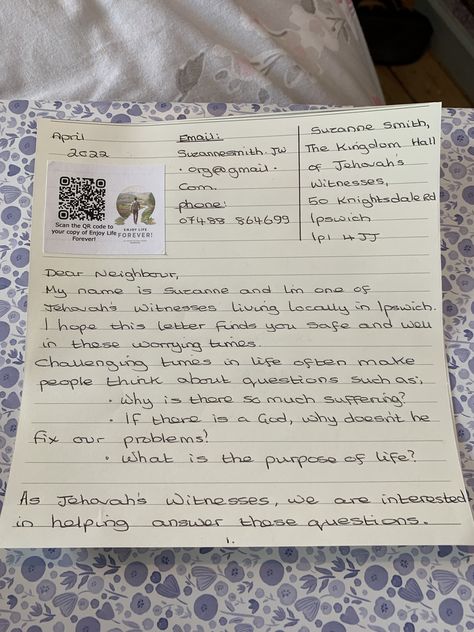 April
2022
Scan the QR code to
your copy of Enjoy Life
Forever!
ENJOY LIFE
FOREVER!
Email:
Suzannesmith.JW
.org@gmail.
com.
phone:
07488 864699
Suzanne Smith,
The Kingdom Hall
of Jehovah's
Witnesses,
50 Knightsdale Rd
Ipswich
IP1 4JJ
Dear Neighbour,
My name is Suzanne and I'm one of
Jehovah's Witnesses living locally in Ipswich.
I hope this letter finds you safe and well
in these worrying times.
Challenging times in life often make
people think about questions such as;
• Why is there so much suffering?
• If there is a God, why doesn't he
fix our problems?
• What is the purpose of life?
As Jehovah's Witnesses, we are interested
in helping answer these questions.
1.